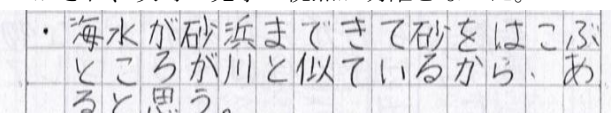 ・海水が砂浜まできて砂をはこぶ
ところが川と似ているから、あ
ると思う。